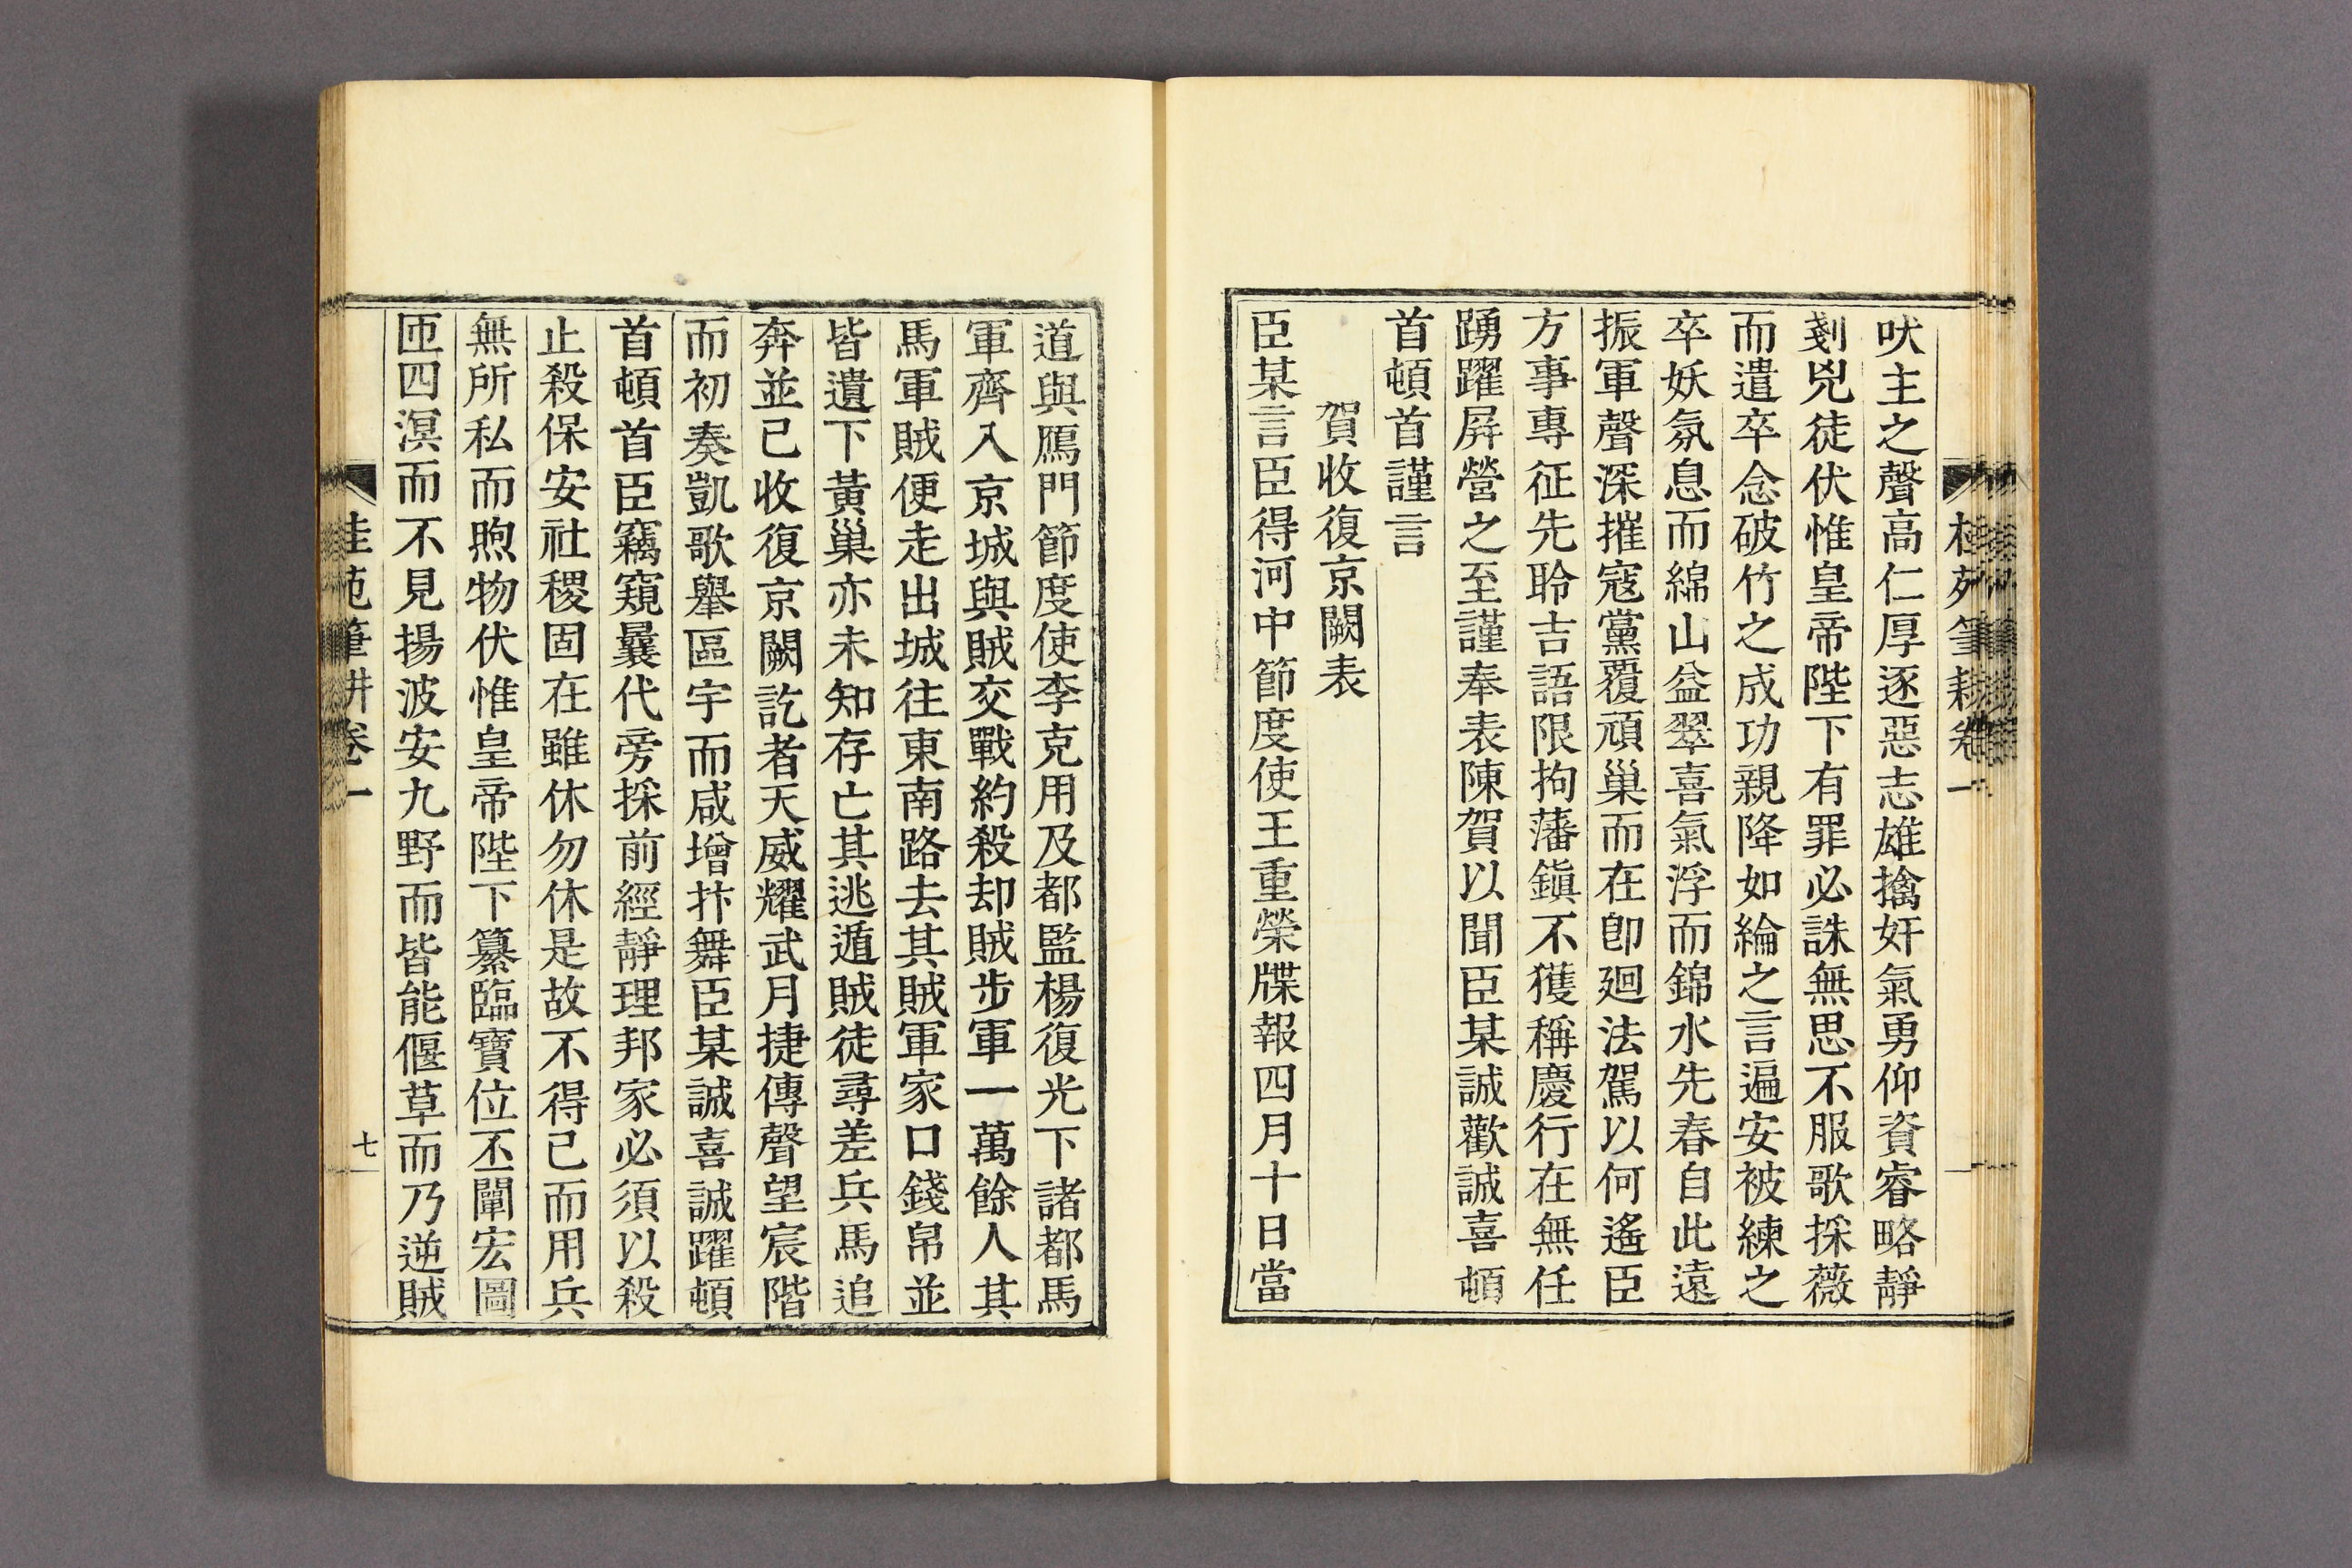 吠主之聲高仁厚逐惡志雄擒奸氣勇仰資睿略靜
剗兇徒伏惟皇帝陛下有罪必誅無思不服歌採薇
而遣卒念破竹之成功親降如綸之言遍安被練之
卒妖氛息而綿山益翠喜氣浮而錦水先春自此遠
振軍聲深摧寇黨覆頑巢而在卽廻法駕以何遙臣
方事專征先聆吉語限拘藩鎭不獲稱慶行在無任
踴躍屛營之至謹奉表陳賀以聞臣某誠歡誠喜頓
首頓首謹言
賀收復京闕表
臣某言臣得河中節度使王重榮牒報四月十日當
道與鴈門節度使李克用及都監楊復光下諸都馬
軍齊入京城與賊交戰約殺却賊步軍一萬餘人其
馬軍賊便走出城往東南路去其賊軍家口錢帛並
皆遺下黃巢亦未知存亡其逃遁賊徒尋差兵馬追
奔並已收復京闕訖者天威耀武月捷傳聲望宸階
而初奏凱歌擧區宇而咸增抃舞臣某誠喜誠躍頓
首頓首臣竊窺曩代旁採前經靜理邦家必須以殺
止殺保安社稷固在雖休勿休是故不得已而用兵
無所私而煦物伏惟皇帝陛下纂臨寶位丕闡宏圖
匝四溟而不見揚波安九野而皆能偃草而乃逆賊
桂苑筆耕卷一
七
桂苑筆耕卷一